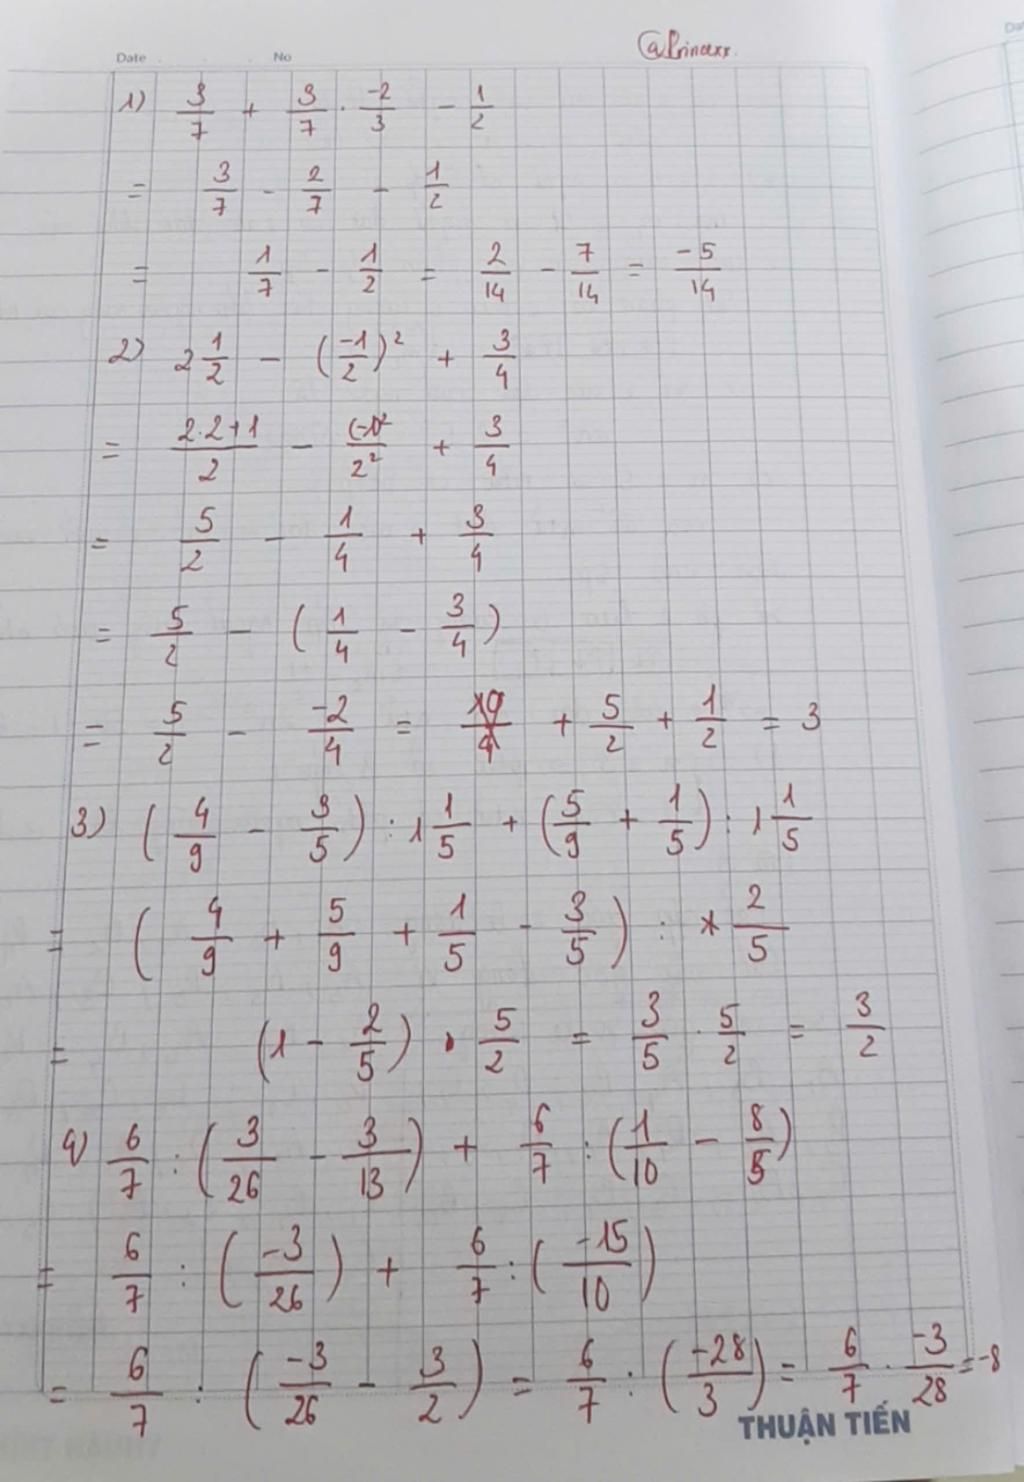 Date No @Princexx.
1) 3/7 + 3/7 . -2/3 - 1/2
= 3/7 - 2/7 - 1/2
= 1/7 - 1/2 = 2/14 - 7/14 = -5/14
2) 2 1/2 - (-1/2)² + 3/4
= 2.2+1/2 - (-1)²/2² + 3/4
= 5/2 - 1/4 + 3/4
= 5/2 - (1/4 - 3/4)
= 5/2 - -2/4 = + 5/2 + 1/2 = 3
3) (4/9 - 3/5) : 1 1/5 + (5/9 + 1/5) : 1 1/5
= (4/9 + 5/9 + 1/5 - 3/5) : 2/5
= (1 - 2/5) . 5/2 = 3/5 . 5/2 = 3/2
4) 6/7 : (3/26 - 3/13) + 6/7 : (1/10 - 8/5)
= 6/7 : (-3/26) + 6/7 : (-15/10)
= 6/7 : (-3/26 - 3/2) = 6/7 : (-28/3) = 6/7 . -3/28 = -8
THUẬN TIẾN